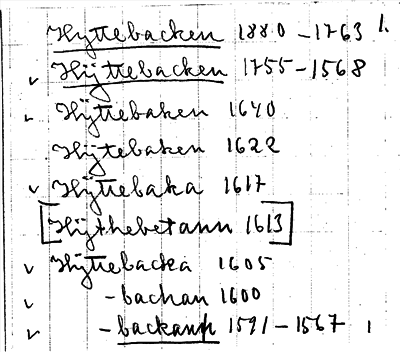 Hyttebacken 1880–1763 1.
✓ Hÿttebacken 1755–1568
✓ Hÿttebaken 1640
Hÿtebaken 1622
✓ Hÿttebaka 1617
[Hÿthebetann 1613]
✓ Hÿttebacka 1605
✓ -bachan 1600
✓ -backann 1591–1567 1